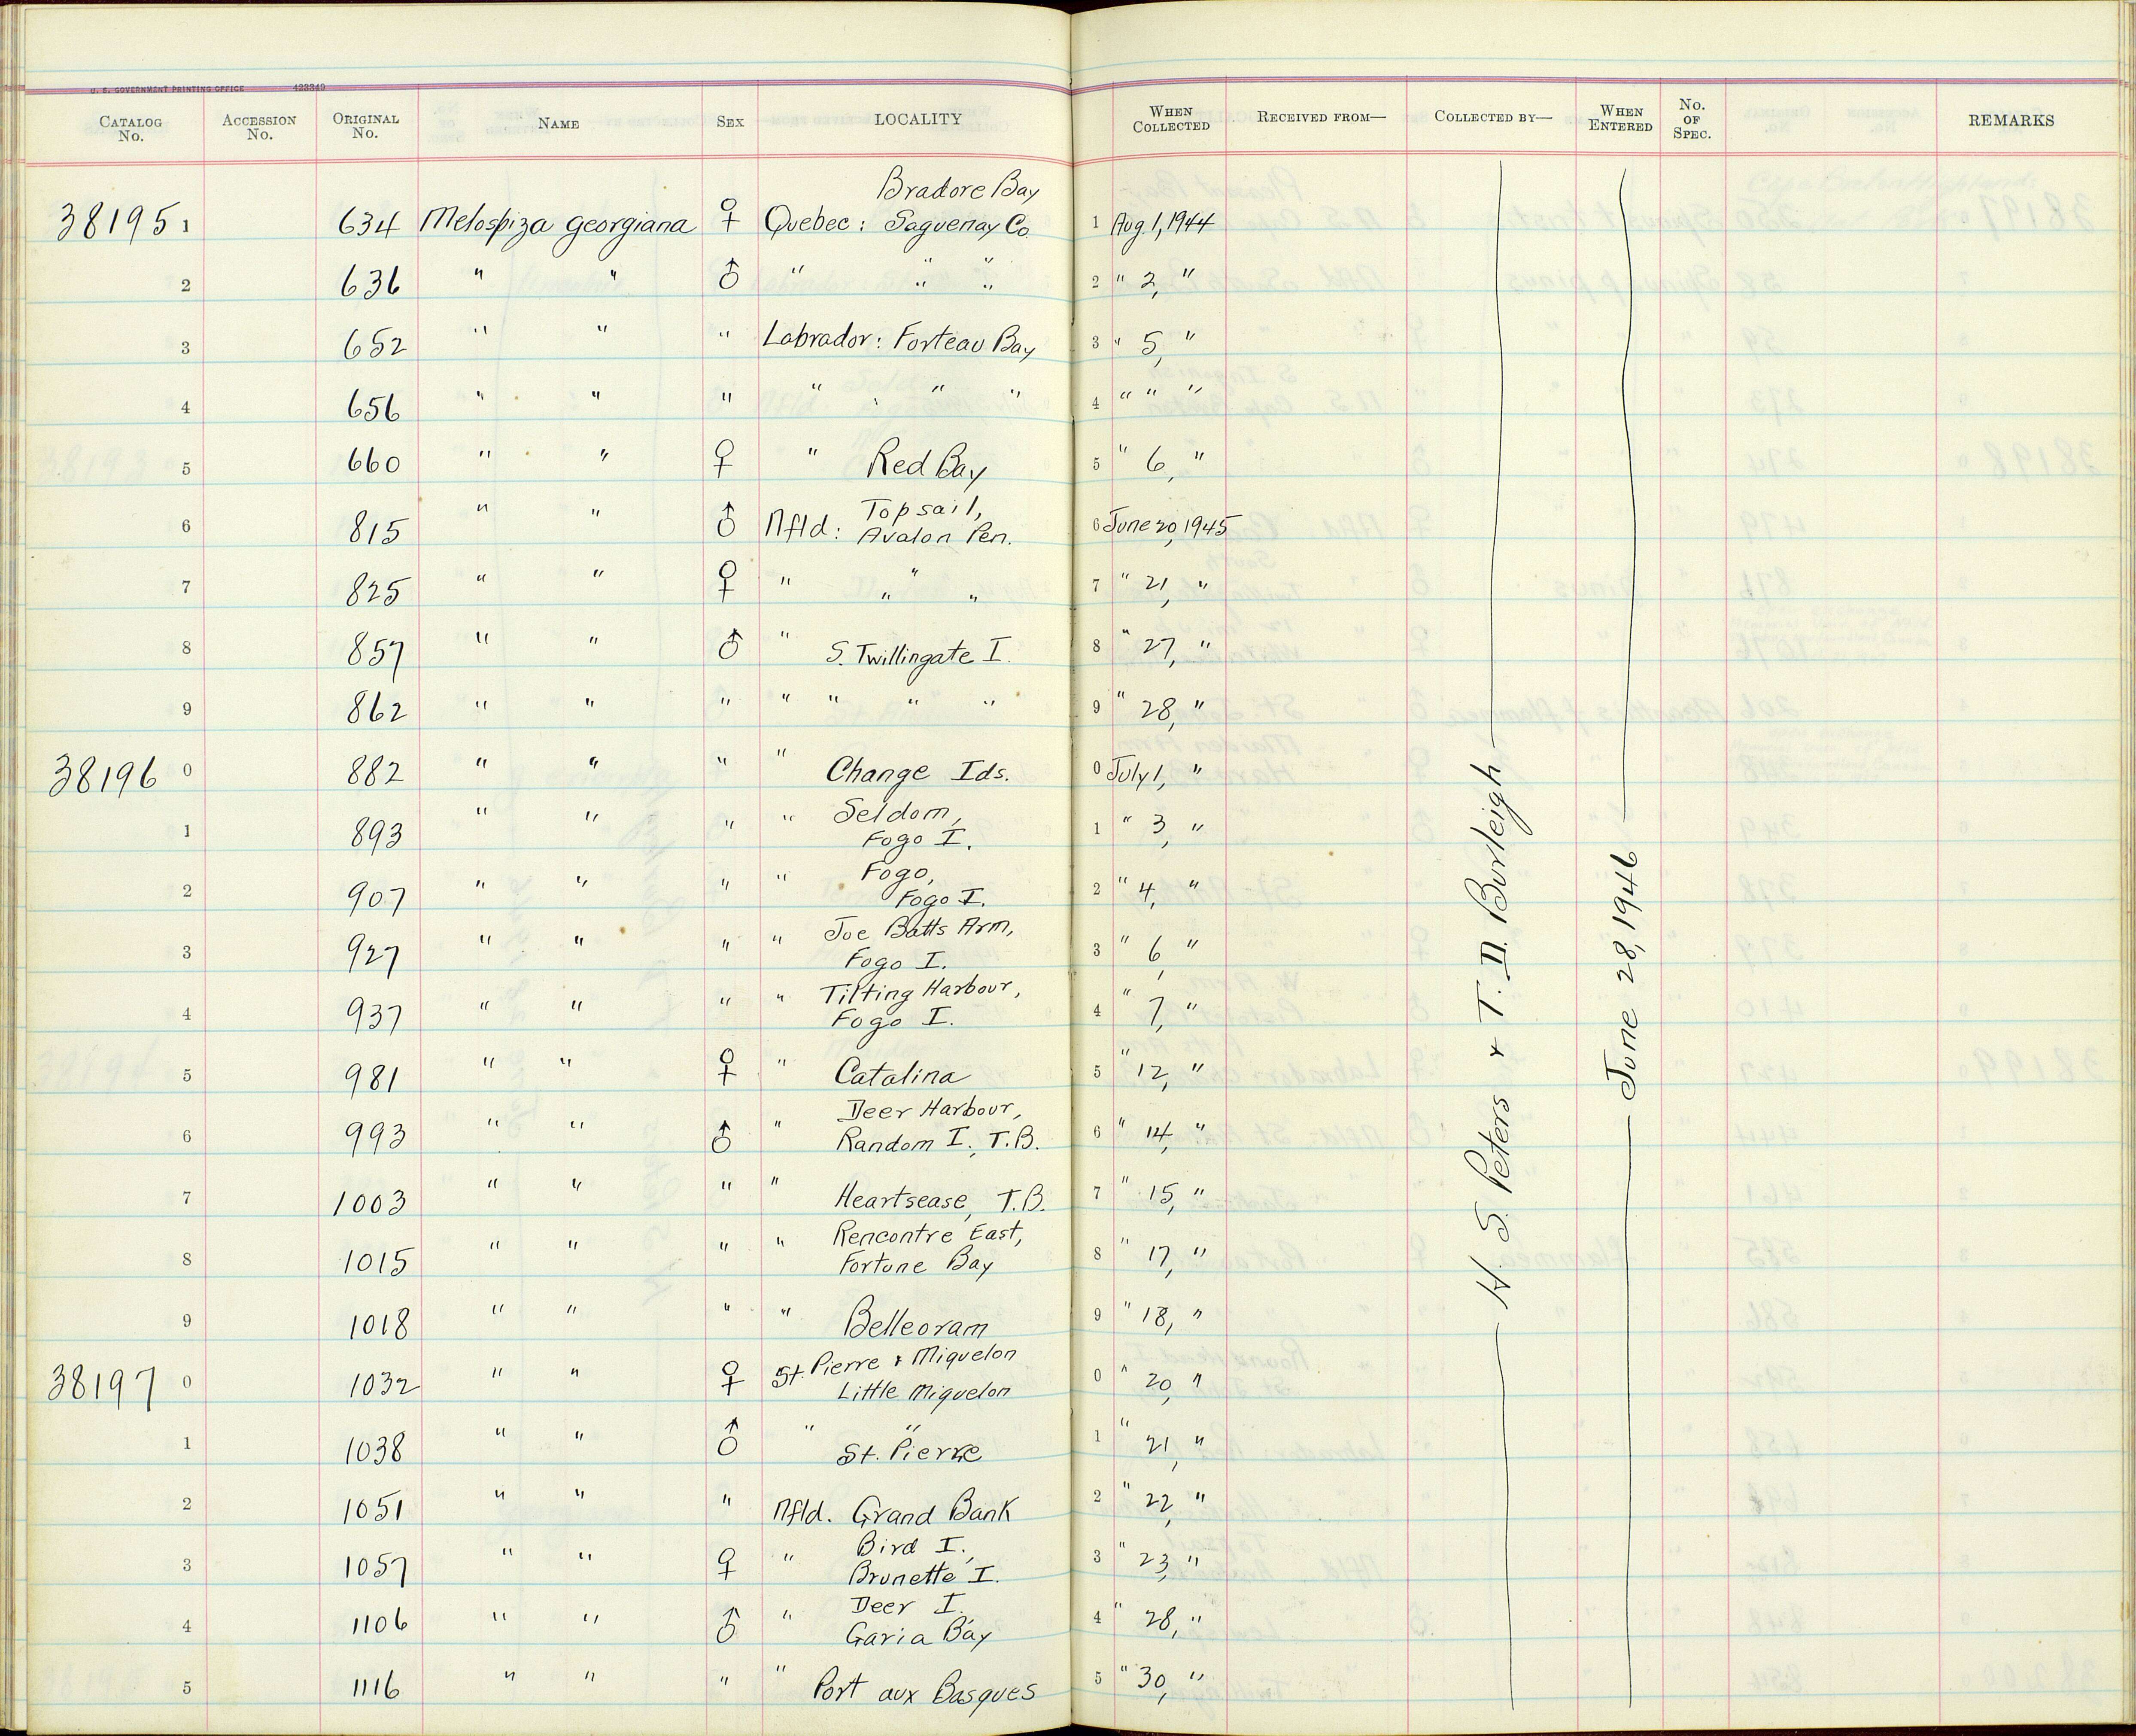 U. S. GOVERNMENT PRINTING OFFICE 423349
CATALOG No. ACCESSION No. ORIGINAL No. NAME SEX LOCALITY WHEN COLLECTED RECEIVED FROM— COLLECTED BY— WHEN ENTERED No. OF SPEC. REMARKS
Bradore Bay
38195 1 634 Melospiza georgiana ♀ Quebec: Saguenay Co. 1 Aug. 1, 1944
2 636 " " ♂ " " " " " 2 " 2, "
3 652 " " " Labrador: Forteau Bay 3 " 5, "
4 656 " " " " " " 4 " " "
5 660 " " ♀ " Red Bay 5 " 6, "
6 815 " " ♂ Nfld: Topsail, 6 June 20, 1945
Avalon Pen.
7 825 " " ♀ " " " " 7 " 21, "
8 857 " " ♂ " S. Twillingate I. 8 " 27, "
9 862 " " " " " " " 9 " 28, "
38196 0 882 " " " " Change Ids. 0 July 1, "
1 893 " " " " Seldom, 1 " 3, "
Fogo I.
2 907 " " " " Fogo, 2 " 4, "
Fogo I.
3 927 " " " " Joe Batts Arm, 3 " 6, "
Fogo I.
4 937 " " " " Tilting Harbour, 4 " 7, "
Fogo I.
5 981 " " ♀ " Catalina 5 " 12, "
6 993 " " ♂ " Deer Harbour, 6 " 14, "
Random I., T.B.
7 1003 " " " " Heartsease, T.B. 7 " 15, "
8 1015 " " " " Rencontre East, 8 " 17, "
Fortune Bay
9 1018 " " " " Belleoram 9 " 18, "
38197 0 1032 " " ♀ St. Pierre & Miquelon 0 " 20, "
Little Miquelon
1 1038 " " ♂ " " 1 " 21, "
St. Pierre
2 1051 " " " Nfld. Grand Bank 2 " 22, "
3 1057 " " ♀ " Bird I., 3 " 23, "
Brunette I.
4 1106 " " ♂ " Deer I. 4 " 28, "
Garia Bay
5 1116 " " " " Port aux Basques 5 " 30, "
H. S. Peters & T. D. Burleigh
June 28, 1946